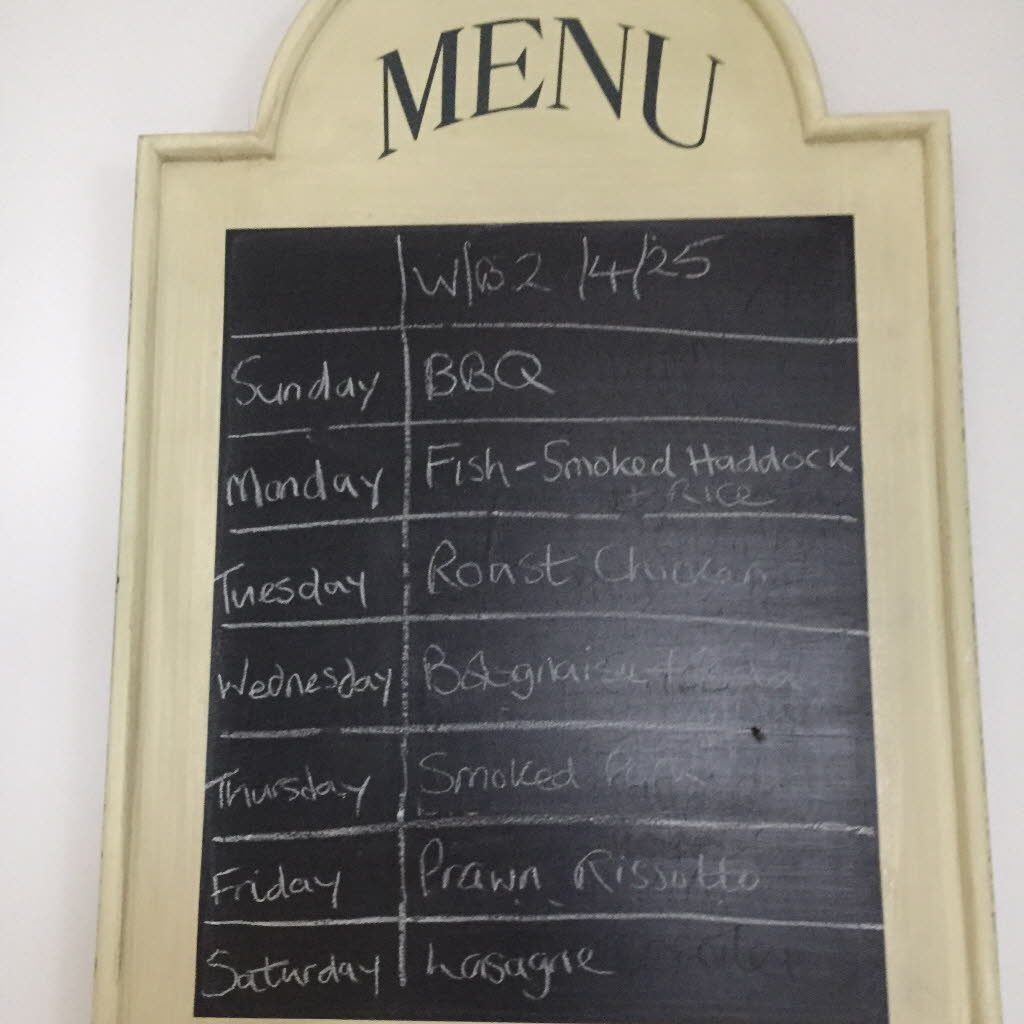 MENU
W/B 2 /4/25
Sunday BBQ
Monday Fish-Smoked Haddock
+ Rice
Tuesday Roast Chicken
Wednesday Bolognaise +
Thursday Smoked
Friday Prawn Rissotto
Saturday Lasagne